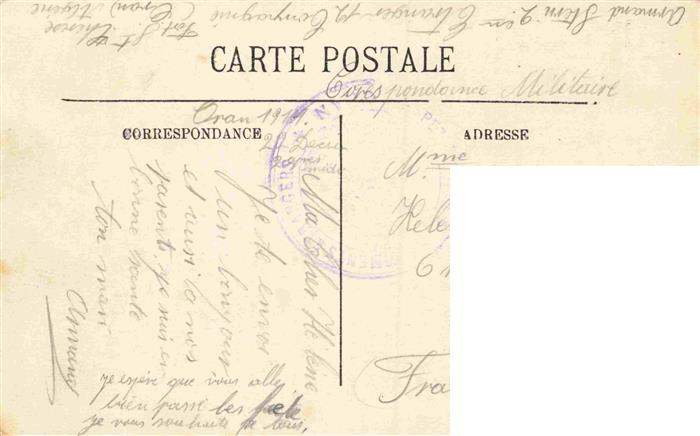 Armand Stern 2 en Etranger 12 Compagnie
Fort St Therese (Oran) Algérie
CARTE POSTALE
Corespondance Militaire
CORRESPONDANCE
ADRESSE
Oran 1914.
Decem
apres
midi
Ma Cher Helene
Je te envoi
un bonjour
et ausi la nos
parents. je suis en
bonne santé
ton mari
Armand
je espéré que vous allez
bien passé les fete
je vous souhaite de tous.
Mme
Hele
6
Fra